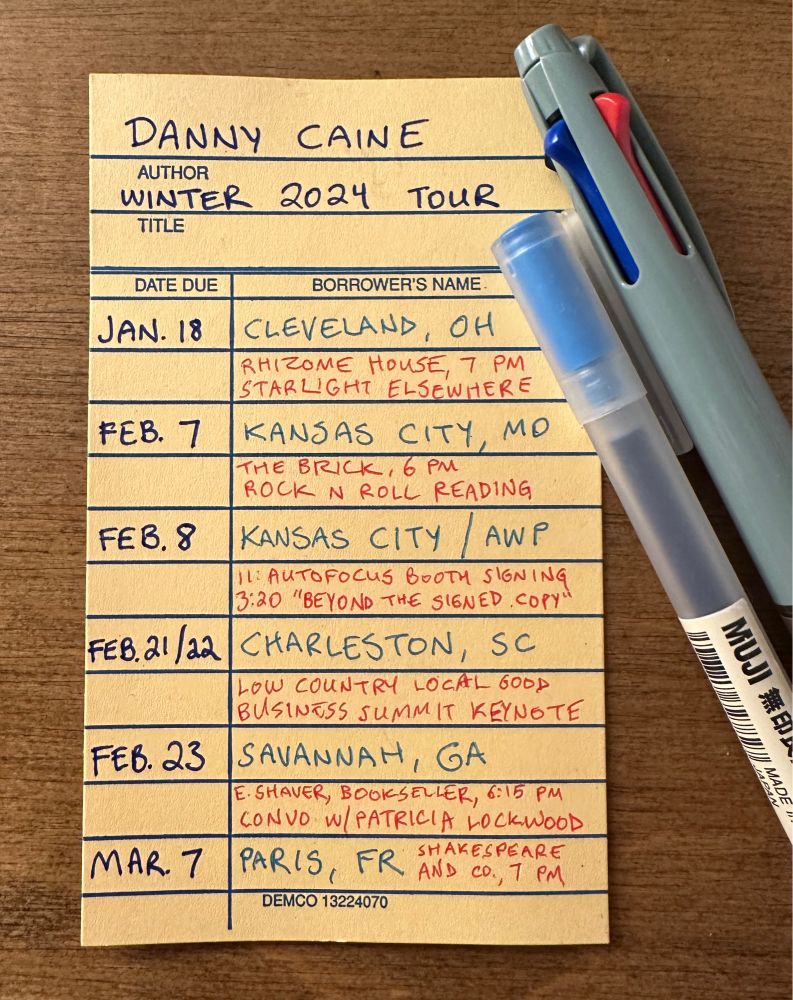 DANNY CAINE
AUTHOR
WINTER 2024 TOUR
TITLE
DATE DUE BORROWER'S NAME
JAN. 18 CLEVELAND, OH
RHIZOME HOUSE, 7 PM
STARLIGHT ELSEWHERE
FEB. 7 KANSAS CITY, MO
THE BRICK, 6 PM
ROCK N ROLL READING
FEB. 8 KANSAS CITY / AWP
11: AUTOFOCUS BOOTH SIGNING
3:20 "BEYOND THE SIGNED COPY"
FEB. 21/22 CHARLESTON, SC
LOW COUNTRY LOCAL GOOD
BUSINESS SUMMIT KEYNOTE
FEB. 23 SAVANNAH, GA
E. SHAVER, BOOKSELLER, 6:15 PM
CONVO W/ PATRICIA LOCKWOOD
MAR. 7 PARIS, FR SHAKESPEARE
AND CO., 7 PM
DEMCO 13224070
MUJI 無印良
MADE IN
JAPAN